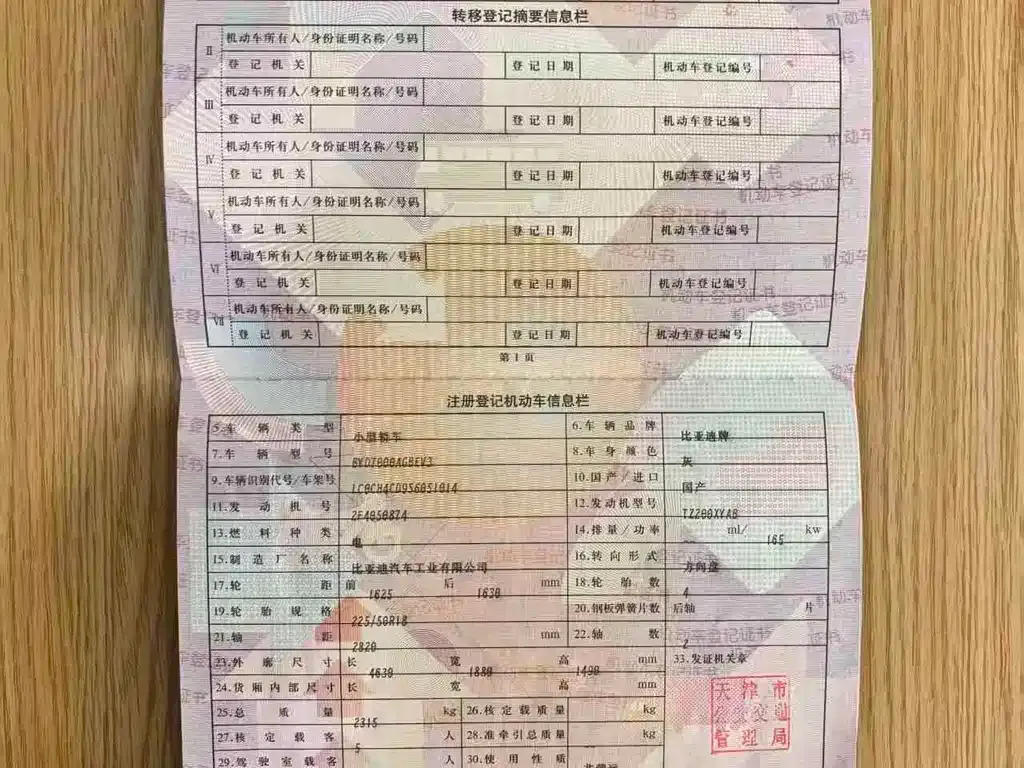 转移登记摘要信息栏
Ⅱ 机动车所有人/身份证明名称/号码
登记机关 登记日期 机动车登记编号
Ⅲ 机动车所有人/身份证明名称/号码
登记机关 登记日期 机动车登记编号
Ⅳ 机动车所有人/身份证明名称/号码
登记机关 登记日期 机动车登记编号
Ⅴ 机动车所有人/身份证明名称/号码
登记机关 登记日期 机动车登记编号
Ⅵ 机动车所有人/身份证明名称/号码
登记机关 登记日期 机动车登记编号
Ⅶ 机动车所有人/身份证明名称/号码
登记机关 登记日期 机动车登记编号
第1页
注册登记机动车信息栏
5.车辆类型 小型轿车 6.车辆品牌 比亚迪牌
7.车辆型号 8.车身颜色 灰
9.车辆识别代号/车架号 10.国产/进口 国产
11.发动机号 2F4050874 12.发动机型号 TZ200XYAB
13.燃料种类 电 14.排量/功率 ml/ 165 kw
15.制造厂名称 比亚迪汽车工业有限公司 16.转向形式 方向盘
17.轮距 前 1625 后 1630 mm 18.轮胎数 4
19.轮胎规格 225/50R18 20.钢板弹簧片数 后轴 片
21.轴距 2820 mm 22.轴数 2
23.外廓尺寸 长 4630 宽 1880 高 1490 mm 33.发证机关章
24.货厢内部尺寸 长 宽 高 mm
25.总质量 2315 kg 26.核定载质量 kg
27.核定载客 5 人 28.准牵引总质量 kg
29.驾驶室载客 人 30.使用性质
天津市
管理局
机动车登记证书